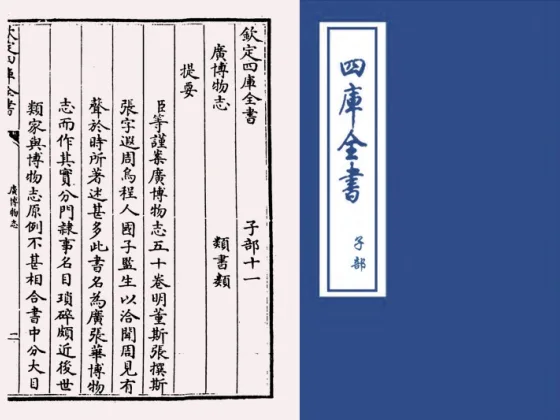 欽定四庫全書 子部十一
廣博物志 類書類
提要
臣等謹案廣博物志五十卷明董斯張撰斯
張字遐周烏程人國子監生以洽聞周見有
聲於時所著述甚多此書名為廣張華博物
志而作其實分門隷事名目瑣碎頗近後世
類家與博物志原例不甚相合書中分大目
欽定四庫全書
廣博物志
二
四庫全書
子部